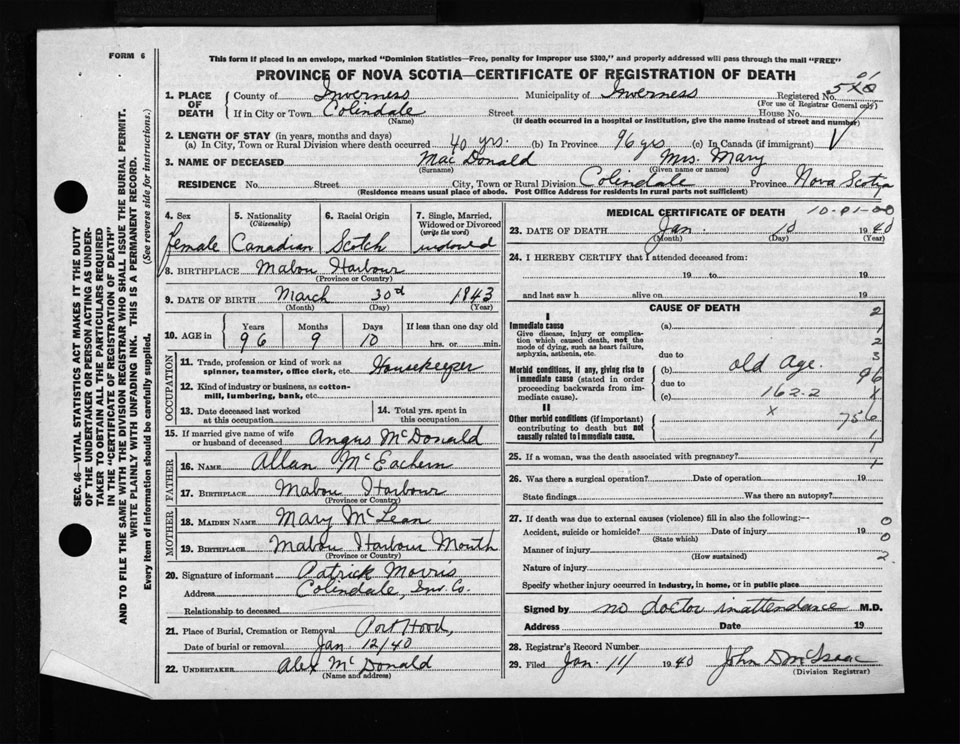 FORM 6
This form if placed in an envelope, marked "Dominion Statistics—Free, penalty for improper use $300," and properly addressed will pass through the mail "FREE"
PROVINCE OF NOVA SCOTIA—CERTIFICATE OF REGISTRATION OF DEATH
1. PLACE OF DEATH County of Inverness Municipality of Inverness Registered No.
(For use of Registrar General only)
If in City or Town Colindale Street House No.
(Name) (If death occurred in a hospital or institution, give the name instead of street and number)
2. LENGTH OF STAY (in years, months and days)
(a) In City, Town or Rural Division where death occurred 40 yrs. (b) In Province 96 yrs (c) In Canada (if immigrant)
3. NAME OF DECEASED Mac Donald Mrs. Mary
(Surname) (Given name or names)
RESIDENCE No. Street City, Town or Rural Division Colindale Province Nova Scotia
(Residence means usual place of abode. Post Office Address for residents in rural parts not sufficient)
4. Sex 5. Nationality (Citizenship) 6. Racial Origin 7. Single, Married, Widowed or Divorced (write the word)
female Canadian Scotch widowed
8. BIRTHPLACE Mabou Harbour
(Province or Country)
9. DATE OF BIRTH March 30d 1843
(Month) (Day) (Year)
10. AGE in Years Months Days If less than one day old
96 9 10 hrs. or min.
OCCUPATION
11. Trade, profession or kind of work as spinner, teamster, office clerk, etc. Housekeeper
12. Kind of industry or business, as cotton-mill, lumbering, bank, etc.
13. Date deceased last worked at this occupation 14. Total yrs. spent in this occupation
15. If married give name of wife or husband of deceased Angus McDonald
FATHER
16. NAME Allan McEachern
17. BIRTHPLACE Mabou Harbour
(Province or Country)
MOTHER
18. MAIDEN NAME Mary McLean
19. BIRTHPLACE Mabou Harbour Mouth
(Province or Country)
20. Signature of informant Patrick Morris
Address Colindale, Inv. Co.
Relationship to deceased
21. Place of Burial, Cremation or Removal Port Hood,
Date of burial or removal Jan 12/40
22. UNDERTAKER Alex McDonald
(Name and address)
MEDICAL CERTIFICATE OF DEATH 10-01-00
23. DATE OF DEATH Jan. 10 1940
(Month) (Day) (Year)
24. I HEREBY CERTIFY that I attended deceased from:
19 to 19
and last saw h alive on 19
CAUSE OF DEATH
I
Immediate cause (a)
Give disease, injury or complication which caused death, not the mode of dying, such as heart failure, asphyxia, asthenia, etc.
due to
Morbid conditions, if any, giving rise to immediate cause (stated in order proceeding backwards from immediate cause). (b) old age.
due to
(c) 162-2
II
Other morbid conditions (if important) contributing to death but not causally related to immediate cause.
x
2
1
2
3
96
x
756
1
1
1
25. If a woman, was the death associated with pregnancy?
26. Was there a surgical operation? Date of operation 19
State findings Was there an autopsy?
27. If death was due to external causes (violence) fill in also the following:—
Accident, suicide or homicide? Date of injury 19
(State which)
Manner of injury
(How sustained)
Nature of injury
0
0
2
Specify whether injury occurred in industry, in home, or in public place
Signed by no doctor in attendance M.D.
Address Date 19
28. Registrar's Record Number
29. Filed Jan. 11/ 1940 John D McIsaac
(Division Registrar)
SEC. 46—VITAL STATISTICS ACT MAKES IT THE DUTY
OF THE UNDERTAKER OR PERSON ACTING AS UNDER-
TAKER TO OBTAIN ALL THE PARTICULARS REQUIRED
IN THE "CERTIFICATE OF REGISTRATION OF DEATH"
AND TO FILE THE SAME WITH THE DIVISION REGISTRAR WHO SHALL ISSUE THE BURIAL PERMIT.
WRITE PLAINLY WITH UNFADING INK. THIS IS A PERMANENT RECORD.
Every item of information should be carefully supplied. (See reverse side for instructions.)